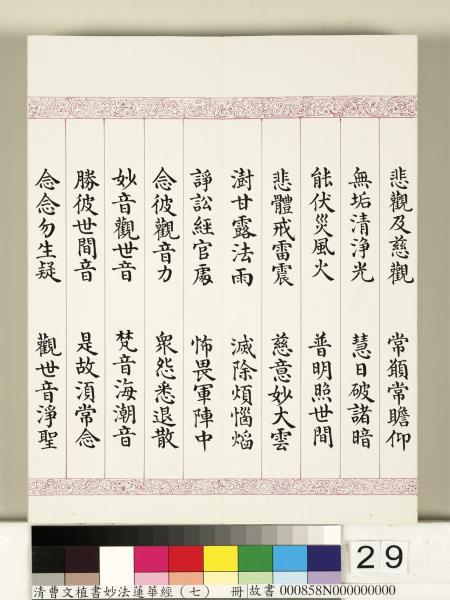 悲觀及慈觀　常願常瞻仰
無垢清淨光　慧日破諸暗
能伏災風火　普明照世間
悲體戒雷震　慈意妙大雲
澍甘露法雨　滅除煩惱焰
諍訟經官處　怖畏軍陣中
念彼觀音力　眾怨悉退散
妙音觀世音　梵音海潮音
勝彼世間音　是故須常念
念念勿生疑　觀世音淨聖
29
清曹文植書妙法蓮華經（七）　冊 故書 000858N000000000